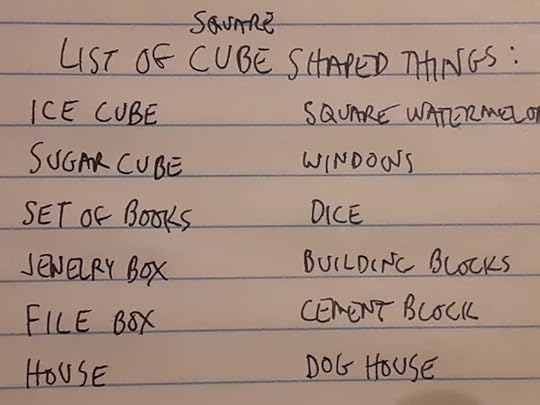 SQUARE
LIST OF CUBE SHAPED THINGS:
ICE CUBE
SUGAR CUBE
SET OF BOOKS
JEWELRY BOX
FILE BOX
HOUSE
SQUARE WATERMELON
WINDOWS
DICE
BUILDING BLOCKS
CEMENT BLOCK
DOG HOUSE